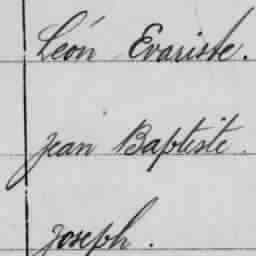 Léon Evariste.
Jean Baptiste.
Joseph.